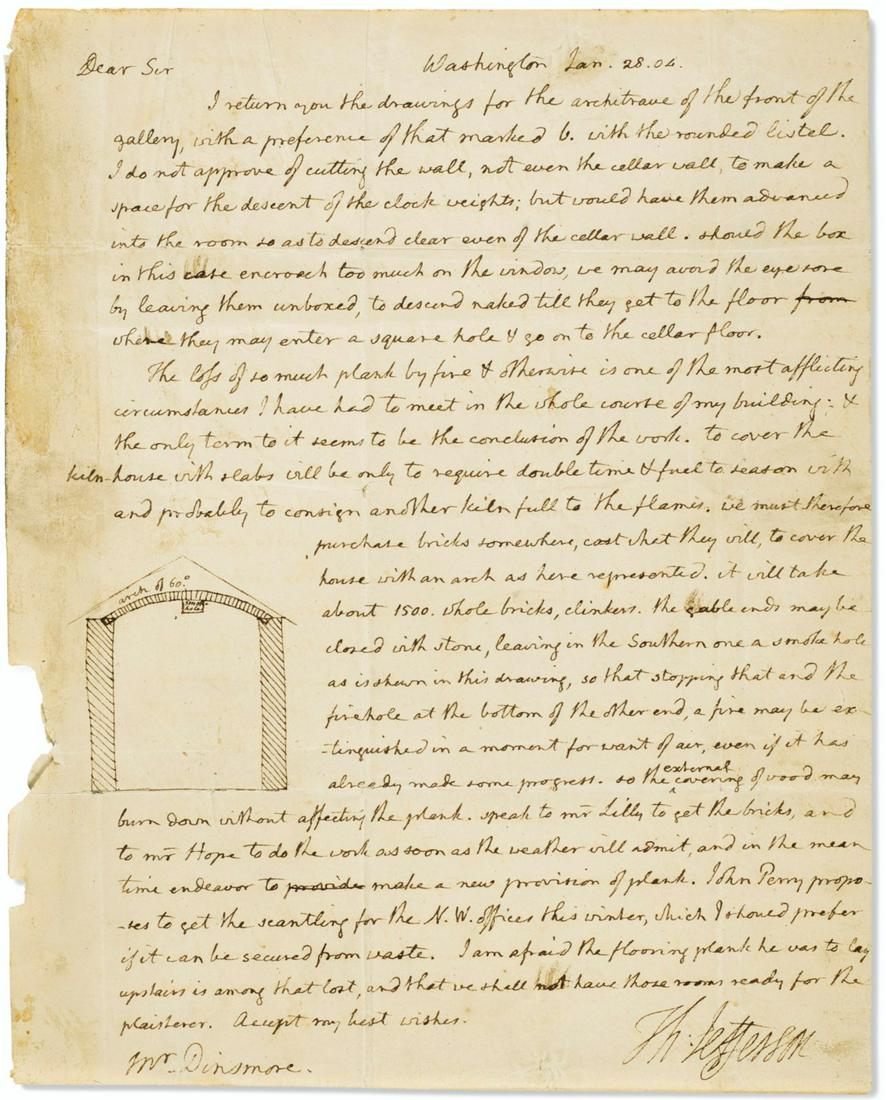 Dear Sir Washington Jan. 28. 04.
I return you the drawings for the architrave of the front of the
gallery, with a preference of that marked b. with the rounded listel.
I do not approve of cutting the wall, not even the cellar wall, to make a
space for the descent of the clock weights; but would have them advanced
into the room so as to descend clear even of the cellar wall. should the box
in this case encroach too much on the window, we may avoid the eye sore
by leaving them unboxed, to descend naked till they get to the floor from
where they may enter a square hole & go on to the cellar floor.
The loss of so much plank by fire & otherwise is one of the most afflicting
circumstances I have had to meet in the whole course of my building: &
the only term to it seems to be the conclusion of the work. to cover the
kiln-house with slabs will be only to require double time & fuel to season with
and probably to consign another kiln full to the flames. we must therefore
purchase bricks somewhere, cost what they will, to cover the
house with an arch as here represented. it will take
about 1500. whole bricks, clinkers. the gable ends may be
closed with stone, leaving in the Southern one a smoke hole
as is shewn in this drawing, so that stopping that and the
firehole at the bottom of the other end, a fire may be ex-
-tinguished in a moment for want of air, even if it has
already made some progress. so the external covering of wood may
arch of 60.°
smoke hole
burn down without affecting the plank. speak to mr Lilly to get the bricks, and
to mr Hope to do the work as soon as the weather will admit, and in the mean
time endeavor to provide make a new provision of plank. John Perry propo-
-ses to get the scantling for the N.W. offices this winter, which I should prefer
if it can be secured from waste. I am afraid the flooring plank he was to lay
upstairs is among that lost, and that we shall not have those rooms ready for the
plaisterer. Accept my best wishes.
Th: Jefferson
Mr. Dinsmore.